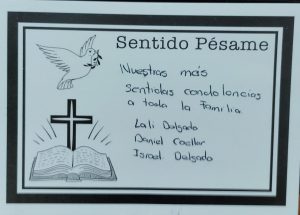 Sentido Pésame
Nuestras más
sentidas condolencias
a toda la familia
Lali Delgado
Daniel Cuellar
Israel Delgado